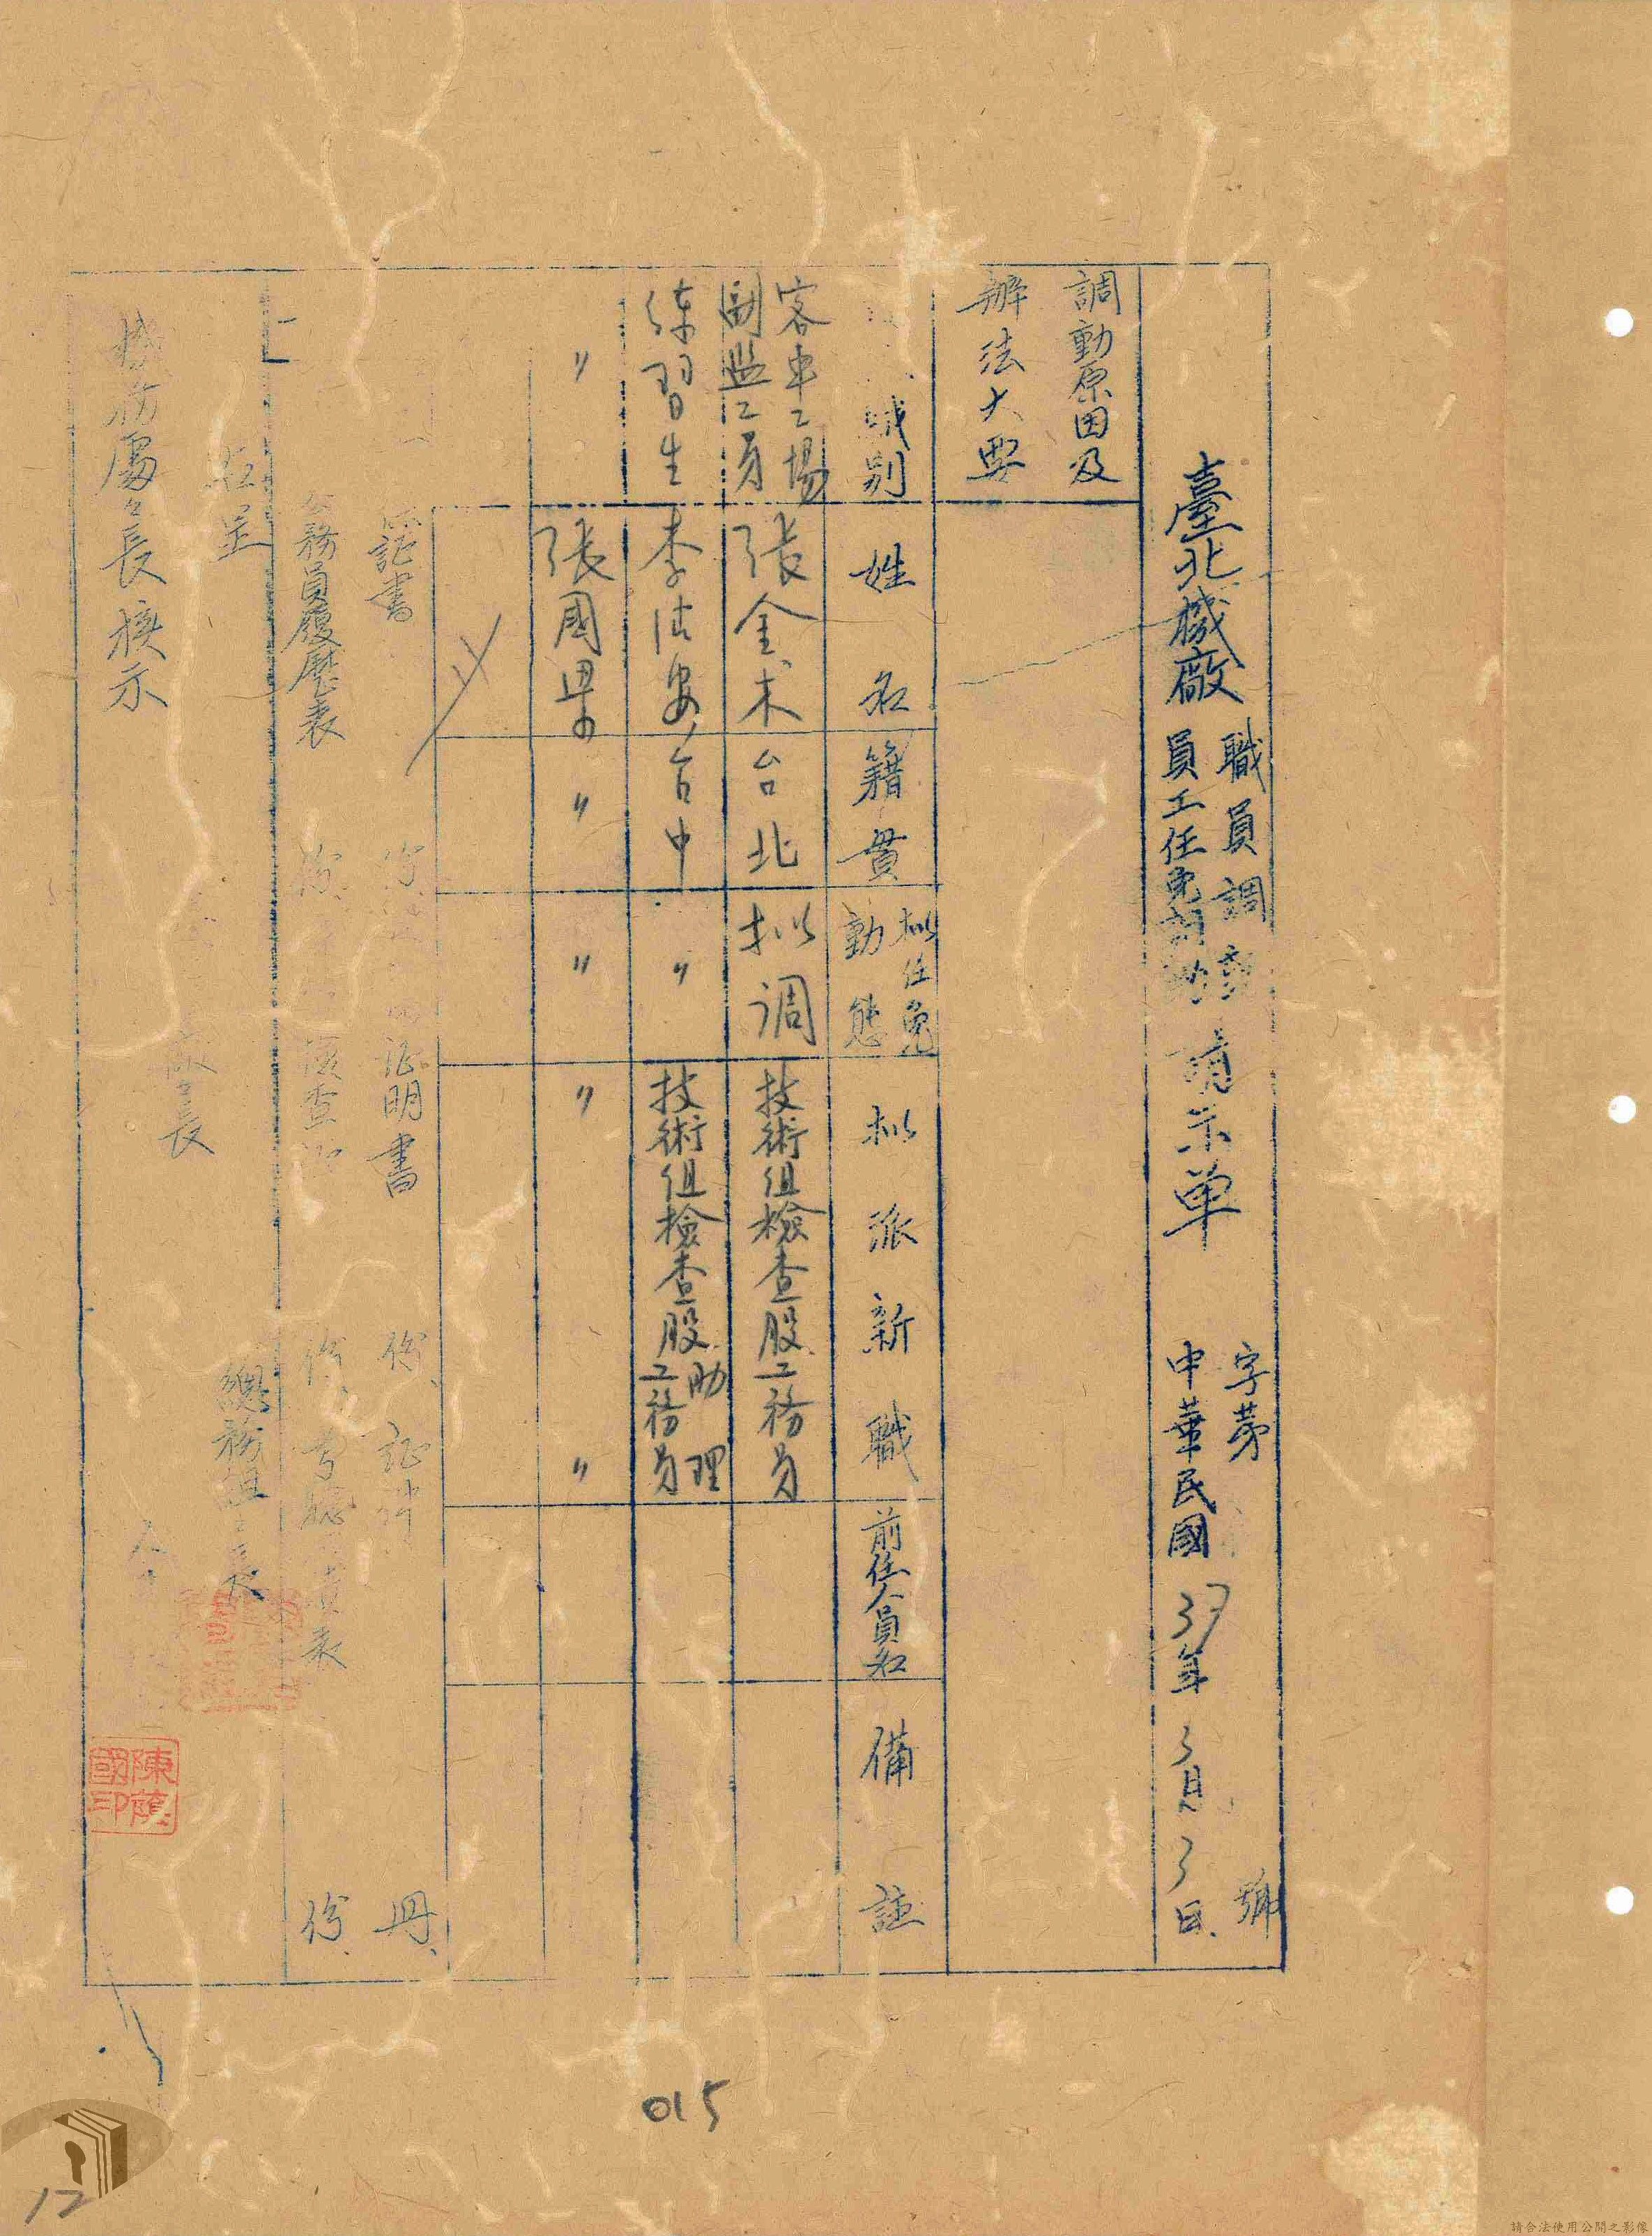 臺北機廠
職員調動
員工任免調動
請示單
字第 號
中華民國 37年 3月 3日
調動原因及
辦法大要
職別 姓名 籍貫 拟任免動態 拟派新職 前任人員名 備註
客車工場副監工員 張金木 台北 拟调 技術組檢查股工務員
练習生 李 台中 〃 技術組檢查股助理工務員
〃 張國 〃 〃 〃 〃
証書 証明書 份 証件 冊
公務員履歷表 份 調查 份 表 份
上
謹呈
總務組組長
機務處處長核示
廠長
陳 國印
015
12
請合法使用公開之影像